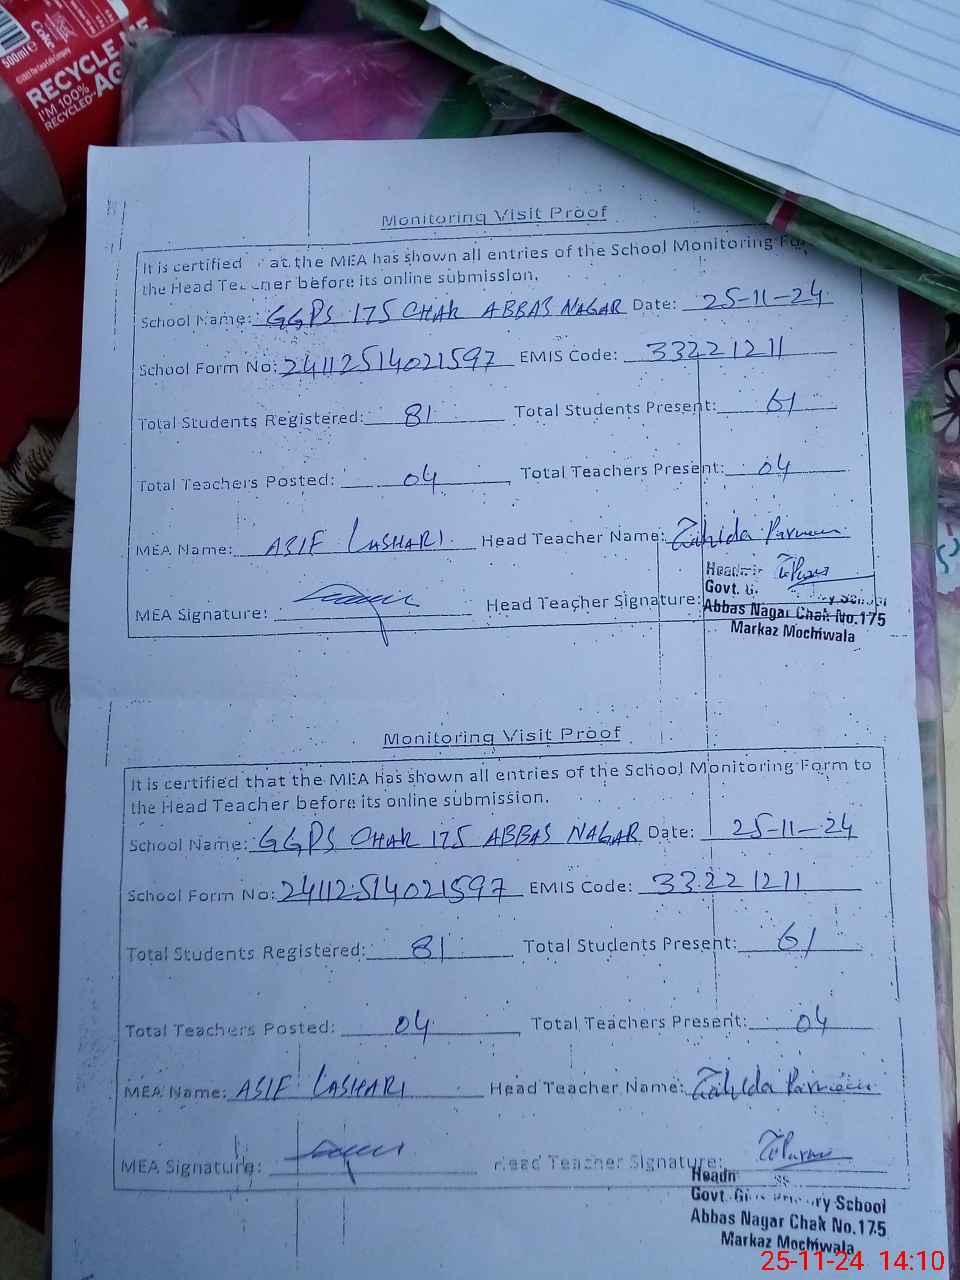 500ml e
Coke
RECYCLE ME
AG
I'M 100%
RECYCLED
Monitoring Visit Proof
It is certified at the MEA has shown all entries of the School Monitoring
the Head before its online submission.
School Name: GGPS 175 CHAK ABBAS NAGAR Date: 25-11-24
School Form No: 24112514021597 EMIS Code: 33221211
Total Students Registered: 81 Total Students Present: 61
Total Teachers Posted: 04 Total Teachers Present: 04
MEA Name: ASIF LASHARI Head Teacher Name: Zahida Parveen
MEA Signature: Head Teacher Signature:
Govt. G
Abbas Nagar Chak No.175
Markaz Mochiwala
Monitoring Visit Proof
It is certified that the MEA has shown all entries of the School Monitoring Form to
the Head Teacher before its online submission.
School Name: GGPS CHAK 175 ABBAS NAGAR Date: 25-11-24
School Form No: 24112514021597 EMIS Code: 33221211
Total Students Registered: 81 Total Students Present: 61
Total Teachers Posted: 04 Total Teachers Present: 04
MEA Name: ASIF LASHARI Head Teacher Name: Zahida Parveen
MEA Signature: Head Teacher Signature:
Govt. School
Abbas Nagar Chak No.175
Markaz Mochiwala
25-11-24 14:10